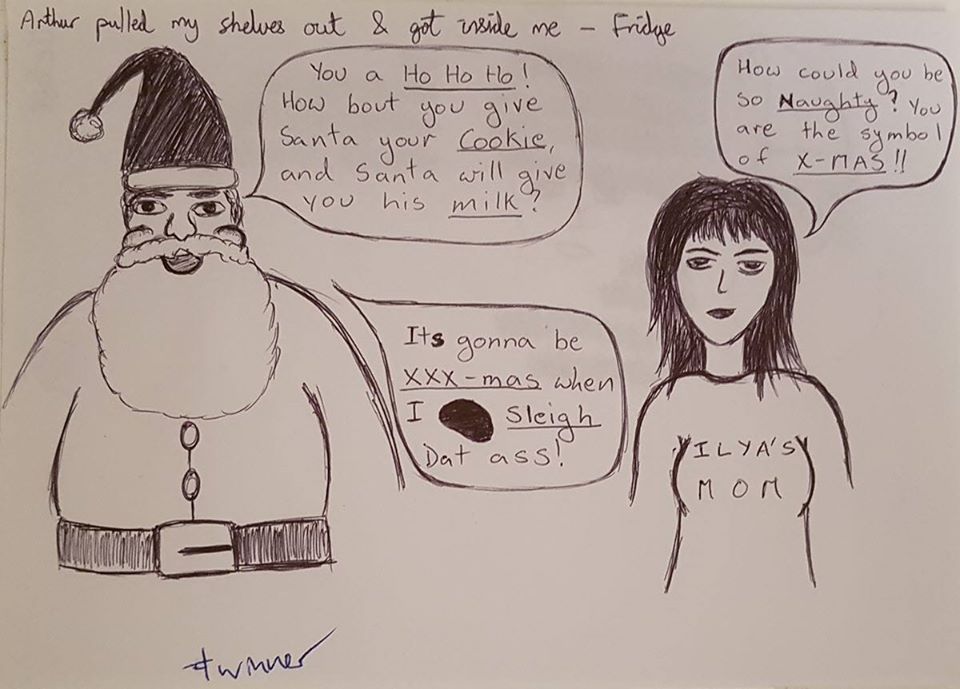 Arthur pulled my shelves out & got inside me – Fridge
You a Ho Ho Ho!
How bout you give
Santa your Cookie,
and Santa will give
you his milk?
How could you be
so Naughty? You
are the symbol
of X-MAS!!
Its gonna be
XXX-mas when
I Sleigh
Dat ass!
ILYA'S
MOM
#winner